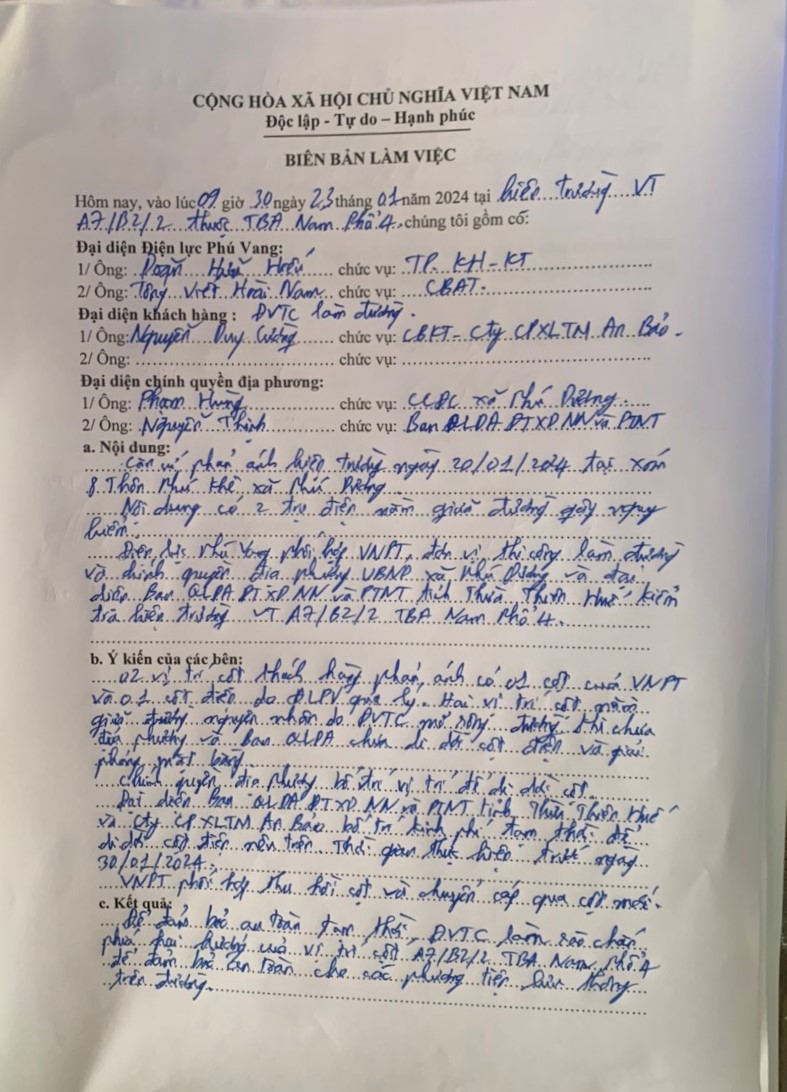 CỘNG HÒA XÃ HỘI CHỦ NGHĨA VIỆT NAM
Độc lập - Tự do – Hạnh phúc
BIÊN BẢN LÀM VIỆC
Hôm nay, vào lúc 09 giờ 30 ngày 23 tháng 01 năm 2024 tại hiện trường VT
A7/B2/2 thuộc TBA Nam Phổ 4, chúng tôi gồm có:
Đại diện Điện lực Phú Vang:
1/ Ông: Đoàn Hữu Hiếu chức vụ: TP. KH-KT
2/ Ông: Tống Viết Hoài Nam chức vụ: CBAT.
Đại diện khách hàng : ĐVTC làm đường.
1/ Ông: Nguyễn Duy Cường chức vụ: CBKT - Cty CPXLTM An Bảo -
2/ Ông: chức vụ:
Đại diện chính quyền địa phương:
1/ Ông: Phạm Hùng chức vụ: xã Phú Dương
2/ Ông: Nguyễn Thịnh chức vụ: Ban QLDA ĐTXD NN và PTNT
a. Nội dung:
Căn cứ phản ánh hiện trường ngày 20/01/2024 tại xóm
8 Thôn Phú Khê, xã Phú Dương
Nội dung có 2 trụ điện nằm giữa đường gây nguy
hiểm.
Điện lực Phú Vang phối hợp VNPT, đơn vị thi công làm đường
và chính quyền địa phương UBND xã Phú Dương và đại
diện Ban QLDA ĐTXD NN và PTNT tỉnh Thừa Thiên Huế kiểm
tra hiện trường VT A7/B2/2 TBA Nam Phổ 4.
b. Ý kiến của các bên:
02 vị trí cột khách hàng phản ánh có 01 cột của VNPT
và 01 cột điện do ĐLPV quản lý. Hai vị trí cột nằm
giữa đường nguyên nhân do ĐVTC mở rộng đường thì chưa
địa phương và Ban QLDA chưa di dời cột điện và giải
phóng mặt bằng
Chính quyền địa phương bố trí vị trí để di dời cột.
Đại diện Ban QLDA ĐTXD NN và PTNT tỉnh Thừa Thiên Huế
và Cty CPXLTM An Bảo bố trí kinh phí tạm thời để
di dời cột điện nêu trên. Thời gian thực hiện trước ngày
30/01/2024.
VNPT phối hợp thu hồi cột và chuyển cáp qua cột mới.
c. Kết quả:
Để đảm bảo an toàn tạm thời, ĐVTC làm rào chắn
phía hai hướng của vị trí cột A7/B2/2 TBA Nam Phổ 4
để đảm bảo an toàn cho các phương tiện lưu thông
trên đường.